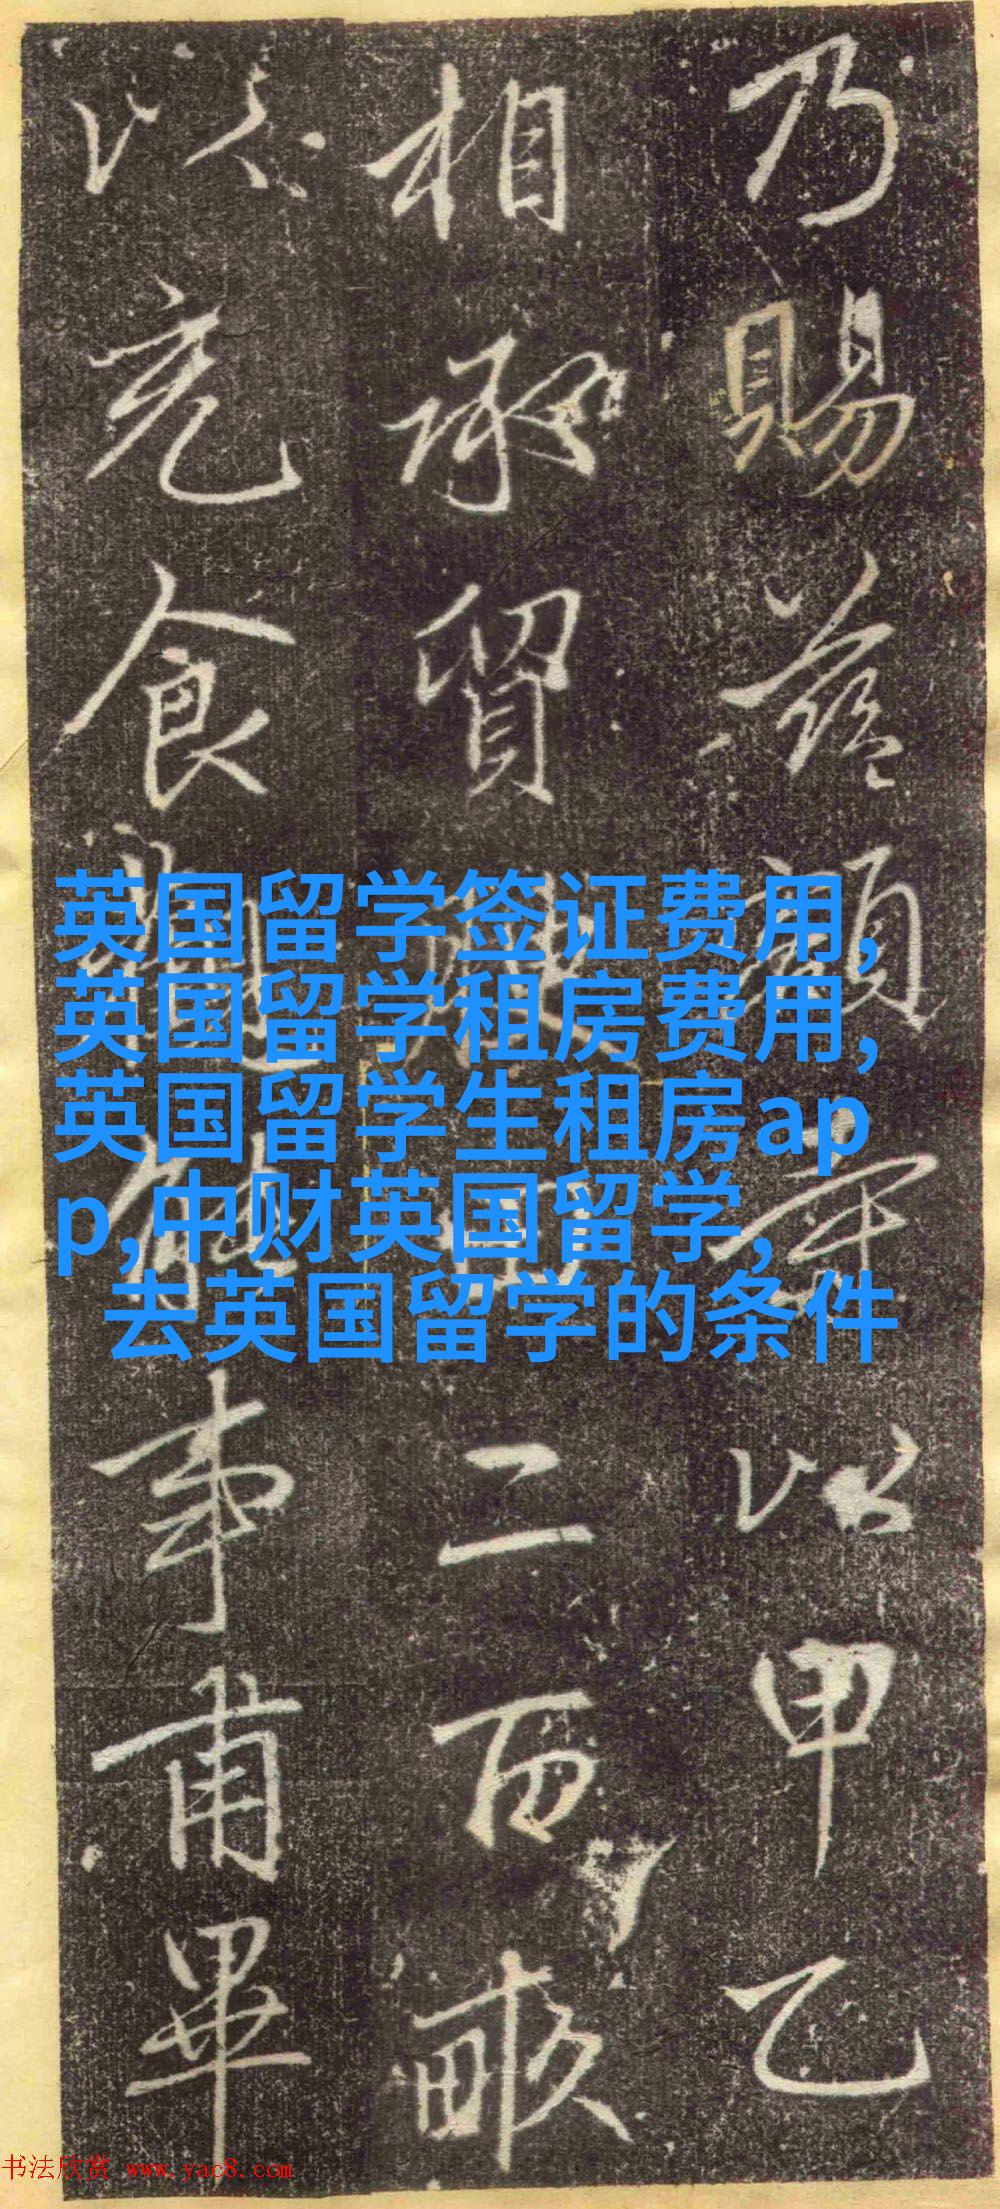 乃賜益頵寺以甲乙
相承貿
二百畝
以充食
事甫畢
英国留学签证费用,
英国留学租房费用,
英国留学生租房ap
p,中财英国留学,
去英国留学的条件
书法欣赏 www.yac8.com